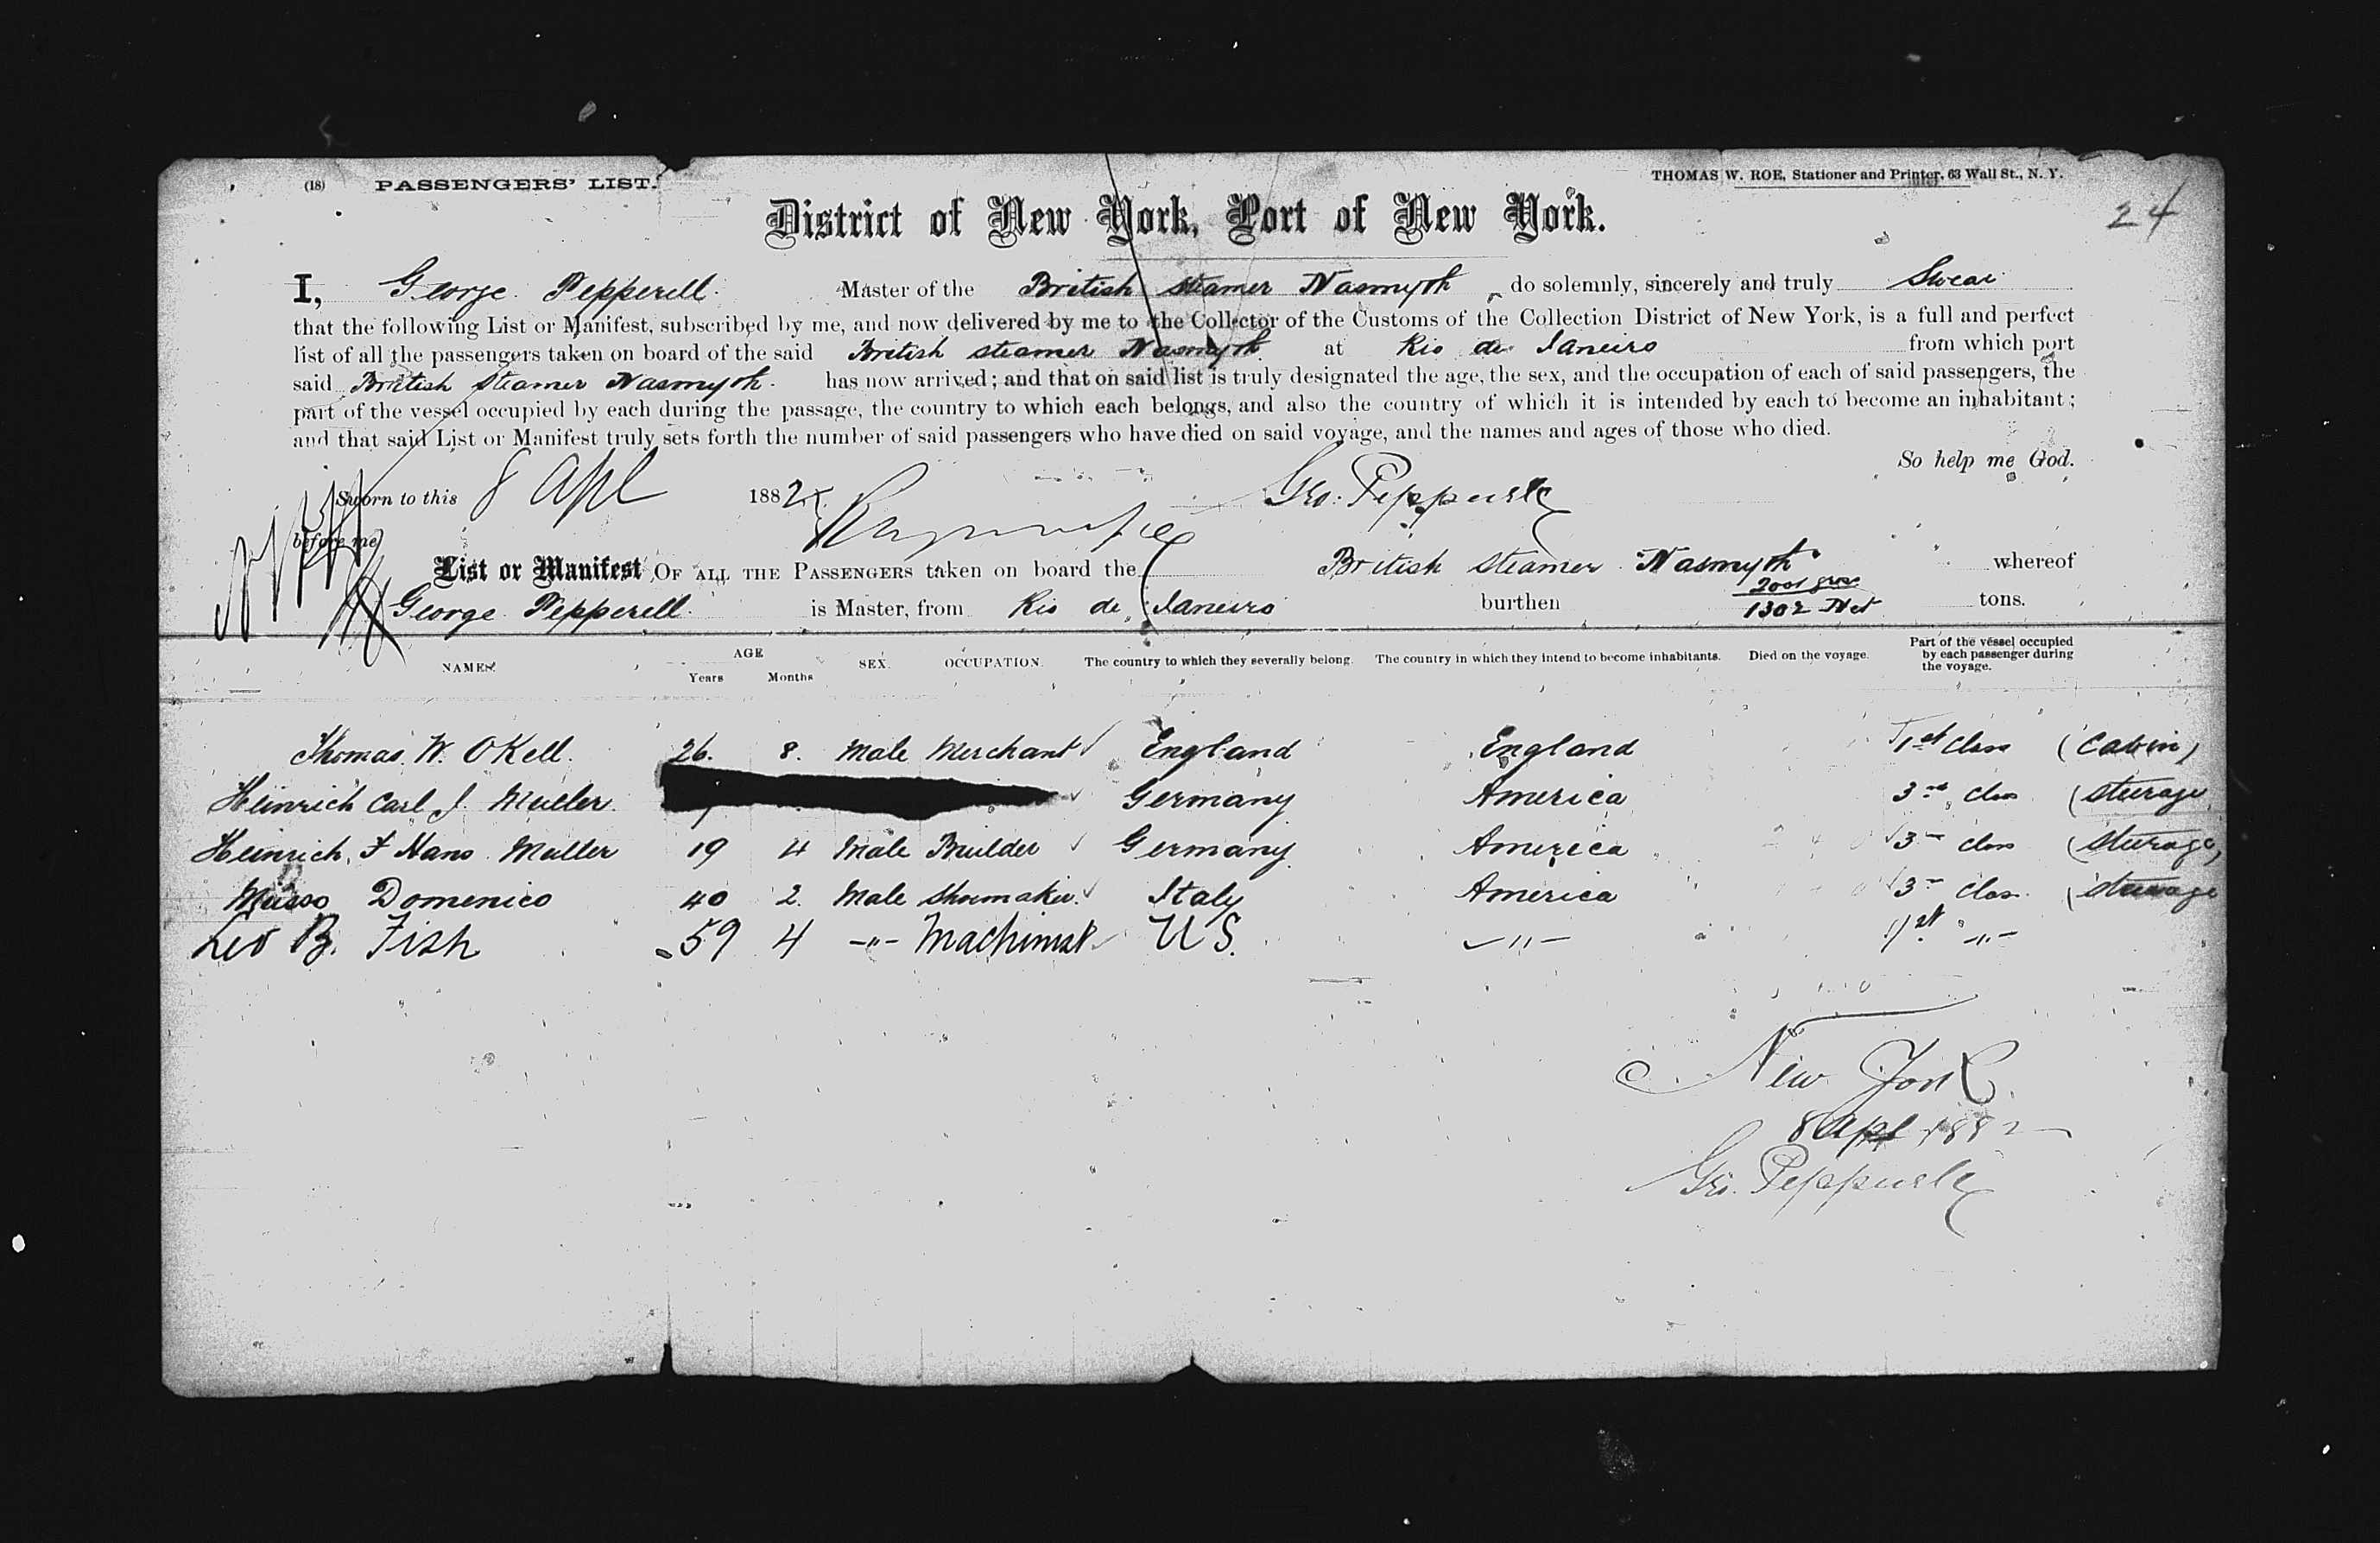 (18) PASSENGERS' LIST. THOMAS W. ROE, Stationer and Printer, 63 Wall St., N. Y.
District of New York, Port of New York.
24
I, George Pepperell Master of the British Steamer Nasmyth do solemnly, sincerely and truly Swear
that the following List or Manifest, subscribed by me, and now delivered by me to the Collector of the Customs of the Collection District of New York, is a full and perfect
list of all the passengers taken on board of the said British steamer Nasmyth at Rio de Janeiro from which port
said British Steamer Nasmyth. has now arrived; and that on said list is truly designated the age, the sex, and the occupation of each of said passengers, the
part of the vessel occupied by each during the passage, the country to which each belongs, and also the country of which it is intended by each to become an inhabitant;
and that said List or Manifest truly sets forth the number of said passengers who have died on said voyage, and the names and ages of those who died.
So help me God.
Sworn to this 8 Apl 1882 Geo: Pepperell
before me
List or Manifest OF ALL THE PASSENGERS taken on board the British steamer "Nasmyth" whereof
George Pepperell is Master, from Rio de Janeiro burthen 1302 Net tons.
NAMES AGE Years Months SEX. OCCUPATION. The country to which they severally belong. The country in which they intend to become inhabitants. Died on the voyage. Part of the vessel occupied by each passenger during the voyage.
Thomas W. OKell. 26. 8. Male Merchant England England 1st class (Cabin)
Heinrich Carl J. Muller Germany America 3rd class (steerage
Heinrich F Hans Muller 19 4 Male Builder Germany America 3 class (steerage)
Musso Domenico 40 2. Male Shoemaker. Italy America 3 class (steerage
Leo B. Fish 59 4 -"- Machinist U S. -"- 1st -"-
New York
8 Apl 1882
Geo. Pepperell